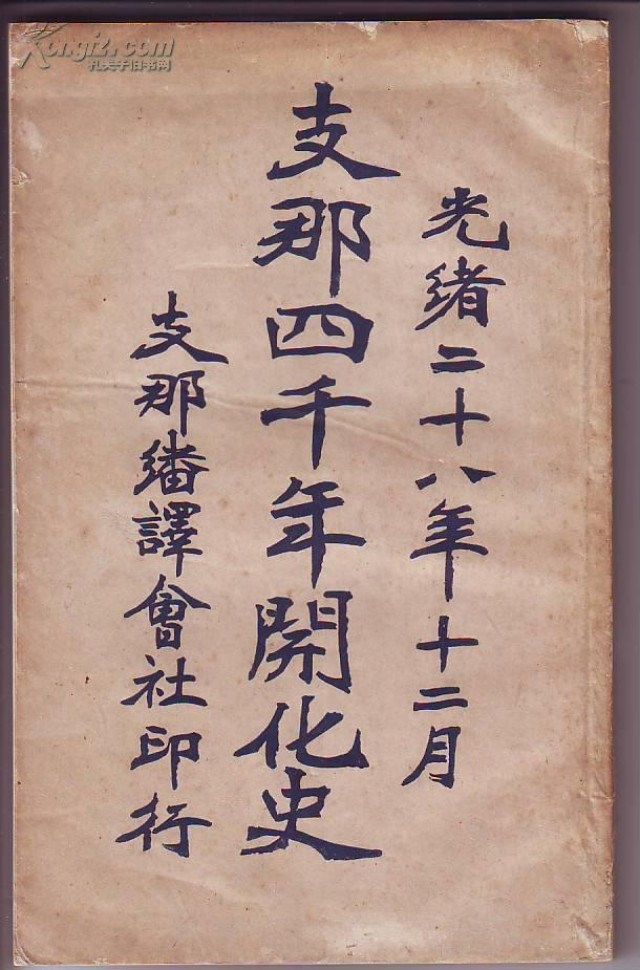 光緒二十八年十二月
支那四千年開化史
支那繙譯會社印行
Kongfz.com
孔夫子旧书网